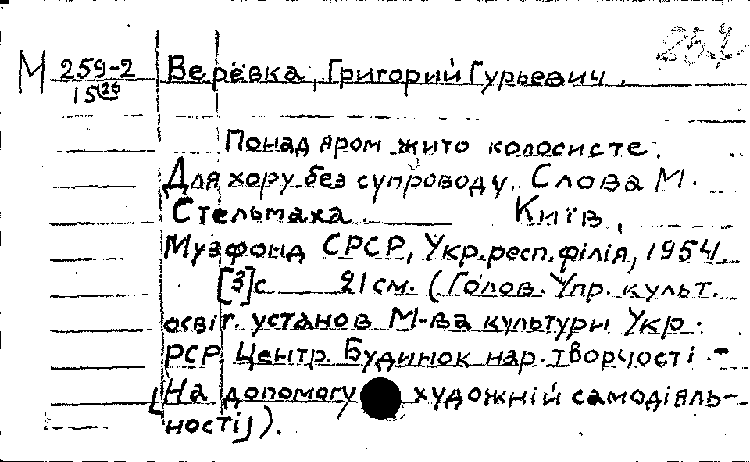 М 259-2 Верёвка, Григорий Гурьевич.
15(26
Понад яром жито колосисте.
Для хору без супроводу. Слова М.
Стельмаха. Київ,
Музфонд СРСР, Укр.респ.філія, 1954.
[3]с 21см. (Голов. Упр. культ.
освіт. установ М-ва культури Укр.
РСР Центр. Будинок нар. творчості -
На допомогу художній самодіяль-
ності).